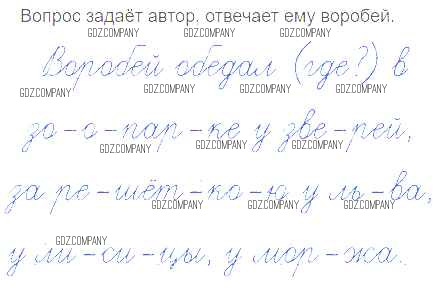 Вопрос задаёт автор, отвечает ему воробей.
GDZCOMPANY GDZCOMPANY GDZCOMPANY
Воробей обедал (где?) в
GDZCOMPANY GDZCOMPANY GDZCOMPANY GDZCOMPANY
зо-о-пар-ке у зве-рей,
GDZCOMPANY GDZCOMPANY GDZCOMPANY
за ре-шёт-ко-ю у ль-ва,
GDZCOMPANY GDZCOMPANY GDZCOMPANY
GDZCOMPANY
у ли-си-цы, у мор-жа.